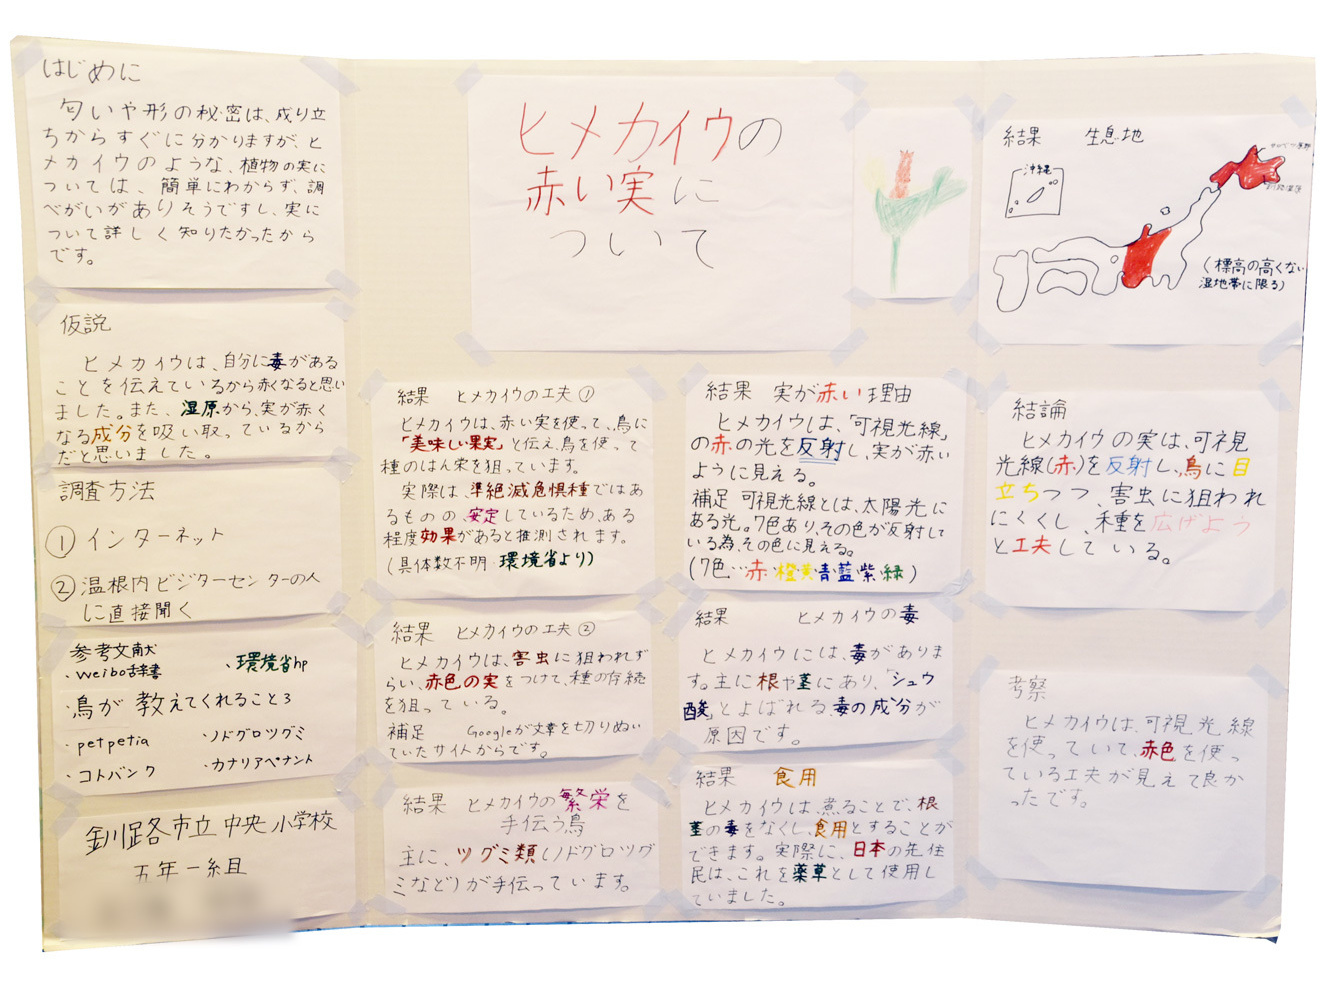 はじめに
匂いや形の秘密は、成り立
ちからすぐに分かりますが、ヒ
メカイウのような、植物の実に
ついては、簡単にわからず、調
べがいがありそうですし、実に
ついて詳しく知りたかったから
です。
仮説
ヒメカイウは、自分に毒がある
ことを伝えているから赤くなると思い
ました。また、湿原から、実が赤く
なる成分を吸い取っているから
だと思いました。
調査方法
① インターネット
② 温根内ビジターセンターの人
に直接聞く
参考文献
・weibo辞書
・環境省hp
・鳥が教えてくれること3
・petpetia
・ノドグロツグミ
・コトバンク
・カナリアペナント
釧路市立中央小学校
五年一組
ヒメカイウの
赤い実に
ついて
結果 ヒメカイウの工夫①
ヒメカイウは、赤い実を使って、鳥に
「美味しい果実」と伝え、鳥を使って
種のはん栄を狙っています。
実際は、準絶滅危惧種ではあ
るものの、安定しているため、ある
程度効果があると推測されます。
(具体数不明・環境省より)
結果 ヒメカイウの工夫②
ヒメカイウは、害虫に狙われず
らい、赤色の実をつけて、種の存続
を狙っている。
補足 Googleが文章を切りぬい
ていたサイトからです。
結果 ヒメカイウの繁栄を
手伝う鳥
主に、ツグミ類(ノドグロツグ
ミなど)が手伝っています。
結果 実が赤い理由
ヒメカイウは、「可視光線」
の赤の光を反射し、実が赤い
ように見える。
補足 可視光線とは、太陽光に
ある光。7色あり、その色が反射して
いる為、その色に見える。
(7色…赤・橙・黄・青・藍・紫・緑)
結果 ヒメカイウの毒
ヒメカイウには、毒がありま
す。主に根や茎にあり、「シュウ
酸」とよばれる毒の成分が
原因です。
結果 食用
ヒメカイウは、煮ることで、根
茎の毒をなくし、食用とすることが
できます。実際に、日本の先住
民は、これを薬草として使用し
ていました。
結果 生息地
沖縄
(標高の高くない
湿地帯に限る)
結論
ヒメカイウの実は、可視
光線(赤)を反射し、鳥に目
立ちつつ、害虫に狙われ
にくくし、種を広げよう
と工夫している。
考察
ヒメカイウは、可視光線
を使っていて、赤色を使っ
ている工夫が見えて良か
ったです。